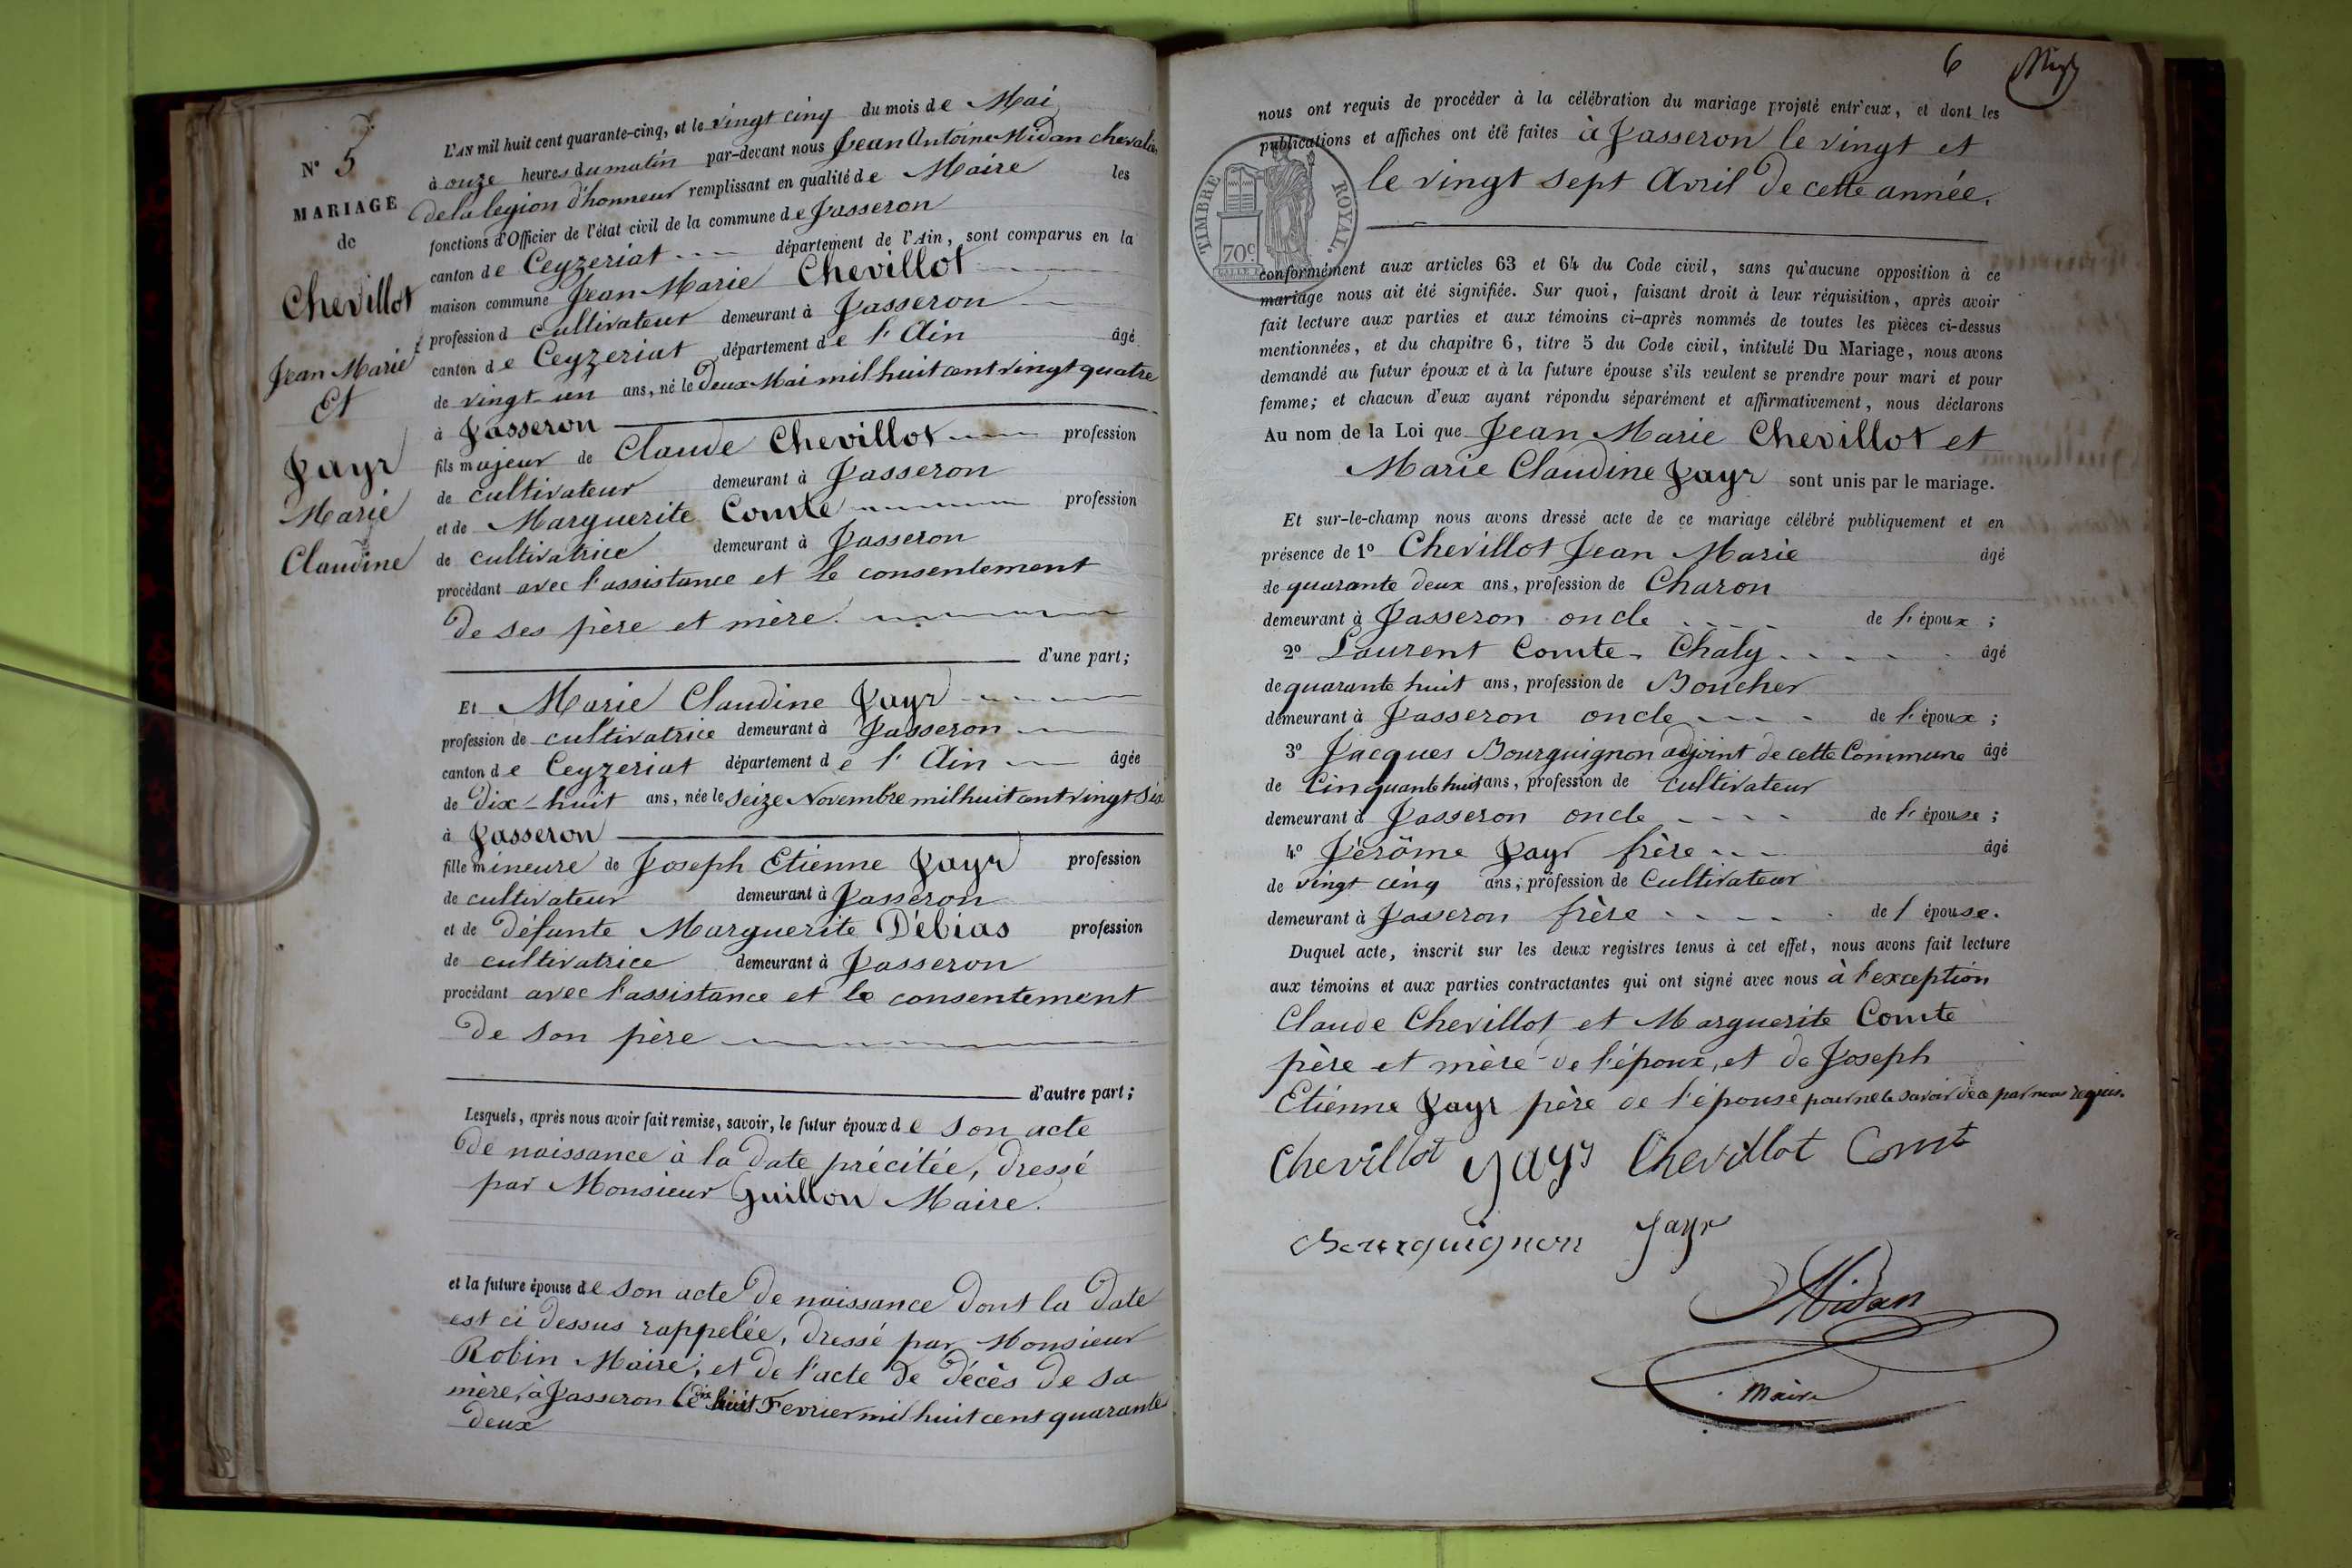 N° 5
MARIAGE
de
Chevillot
Jean Marie
Et
Jayr
Marie
Claudine
L'AN mil huit cent quarante-cinq, et le vingt cinq du mois de Mai
à onze heures du matin par-devant nous Jean Antoine Midan chevalier
de la legion d'honneur remplissant en qualité de Maire les
fonctions d'Officier de l'état civil de la commune de Jasseron
canton de Ceyzeriat département de l'Ain, sont comparus en la
maison commune Jean Marie Chevillot
profession d cultivateur demeurant à Jasseron
canton de Ceyzeriat département de l'Ain âgé
de vingt-un ans, né le deux Mai mil huit cent vingt quatre
à Jasseron
fils majeur de Claude Chevillot profession
de cultivateur demeurant à Jasseron
et de Marguerite Comte profession
de cultivatrice demeurant à Jasseron
procédant avec l'assistance et le consentement
de ses père et mère.
d'une part;
Et Marie Claudine Jayr
profession de cultivatrice demeurant à Jasseron
canton de Ceyzeriat département de l'Ain âgée
de dix-huit ans, née le seize Novembre mil huit cent vingt six
à Jasseron
fille mineure de Joseph Etienne Jayr profession
de cultivateur demeurant à Jasseron
et de défunte Marguerite Débias profession
de cultivatrice demeurant à Jasseron
procédant avec l'assistance et le consentement
de son père
d'autre part;
Lesquels, après nous avoir fait remise, savoir, le futur époux de son acte
de naissance à la date précitée, dressé
par Monsieur Guillon Maire.
et la future épouse de son acte de naissance dont la date
est ci dessus rappelée, dressé par Monsieur
Robin Maire; et de l'acte de décès de sa
mère, à Jasseron le dix huit Fevrier mil huit cent quarante
deux
6
nous ont requis de procéder à la célébration du mariage projeté entr'eux, et dont les
publications et affiches ont été faites à Jasseron le vingt et
le vingt sept Avril de cette année.
TIMBRE ROYAL.
70c
conformément aux articles 63 et 64 du Code civil, sans qu'aucune opposition à ce
mariage nous ait été signifiée. Sur quoi, faisant droit à leur réquisition, après avoir
fait lecture aux parties et aux témoins ci-après nommés de toutes les pièces ci-dessus
mentionnées, et du chapitre 6, titre 5 du Code civil, intitulé Du Mariage, nous avons
demandé au futur époux et à la future épouse s'ils veulent se prendre pour mari et pour
femme; et chacun d'eux ayant répondu séparément et affirmativement, nous déclarons
Au nom de la Loi que Jean Marie Chevillot et
Marie Claudine Jayr sont unis par le mariage.
Et sur-le-champ nous avons dressé acte de ce mariage célébré publiquement et en
présence de 1° Chevillot Jean Marie âgé
de quarante deux ans, profession de Charon
demeurant à Jasseron oncle de l'époux;
2° Laurent Comte-Chaly âgé
de quarante huit ans, profession de Boucher
demeurant à Jasseron oncle de l'époux;
3° Jacques Bourguignon adjoint de cette Commune âgé
de Cinquante huit ans, profession de cultivateur
demeurant à Jasseron oncle de l'épouse;
4° Jérôme Jayr frère âgé
de vingt cinq ans, profession de Cultivateur
demeurant à Jasseron frère de l épouse.
Duquel acte, inscrit sur les deux registres tenus à cet effet, nous avons fait lecture
aux témoins et aux parties contractantes qui ont signé avec nous à l'exception
Claude Chevillot et Marguerite Comte
père et mère de l'époux, et de Joseph
Etienne Jayr père de l'épouse pour ne le savoir de ce par nous requis.
Chevillot Jayr Chevillot Comt
Bourguignon Jayr
Midan
Maire